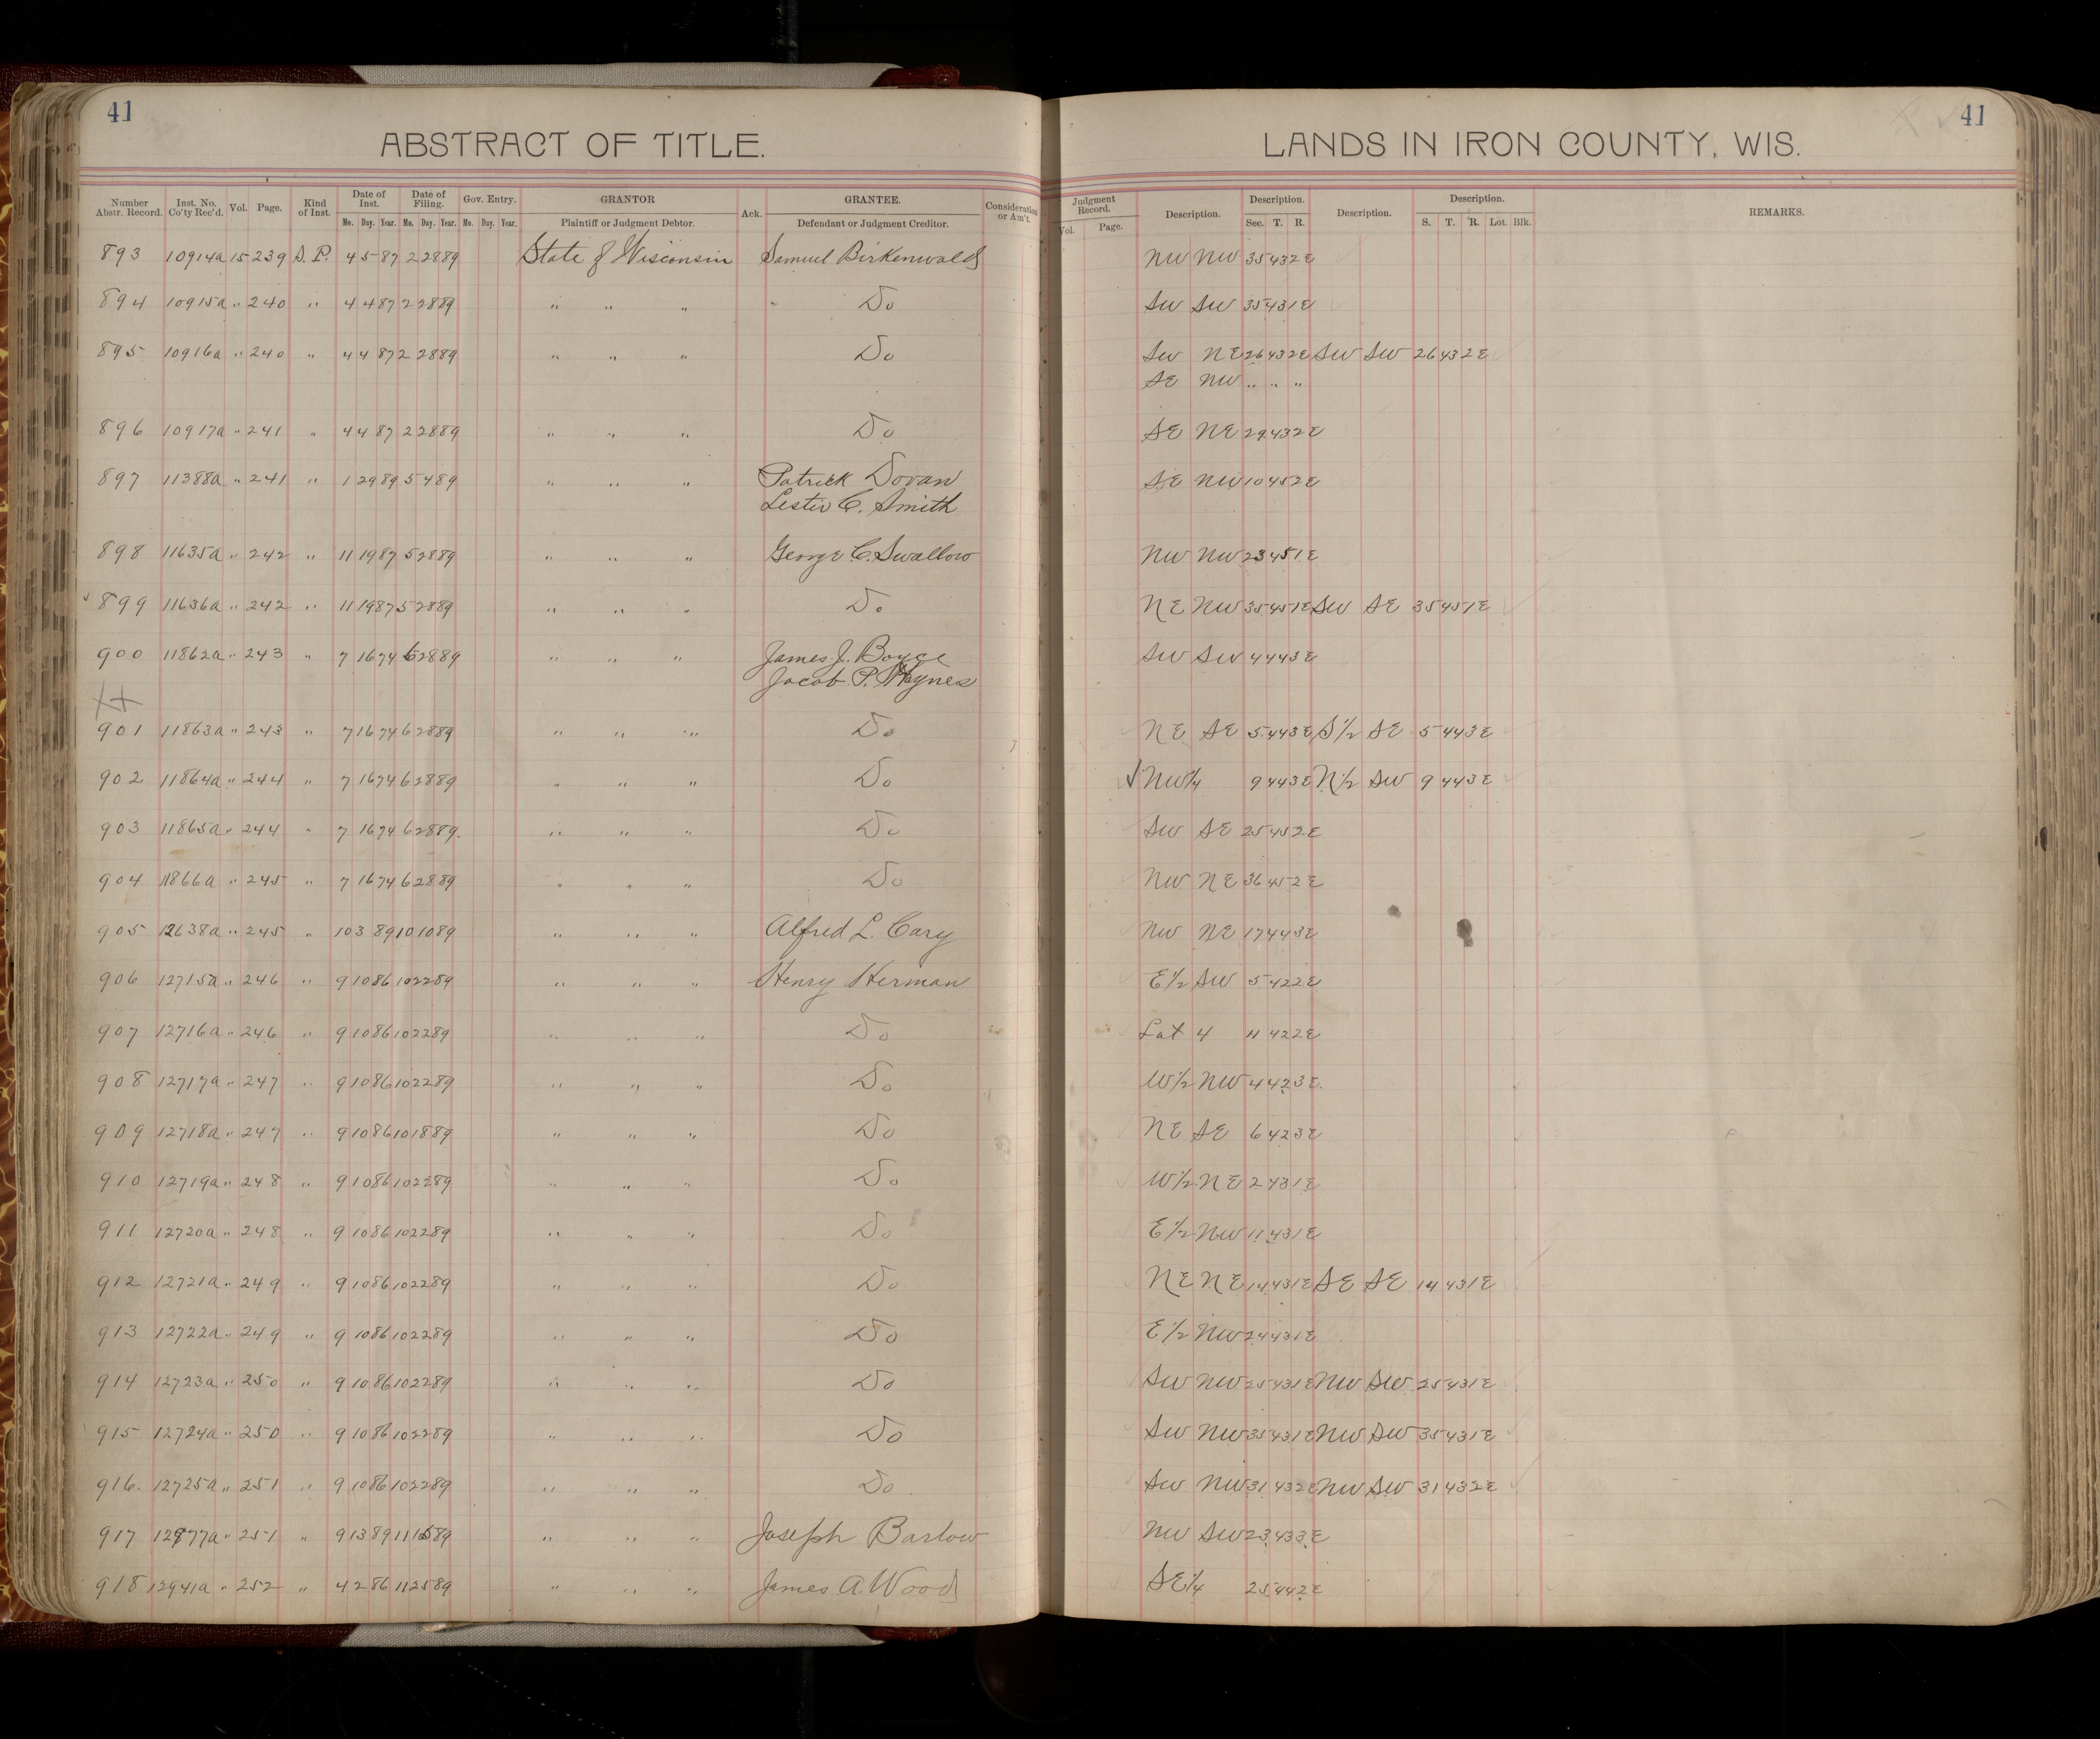 41
ABSTRACT OF TITLE.
Number Abstr. Record. Inst. No. Co'ty Rec'd. Vol. Page. Kind of Inst. Date of Inst. Mo. Day. Year. Date of Filing. Mo. Day. Year. Gov. Entry. Mo. Day. Year. GRANTOR Plaintiff or Judgment Debtor. Ack. GRANTEE. Defendant or Judgment Creditor. Consideration or Am't.
893 10914a 15 239 S. P. 4 5 87 2 28 89 State of Wisconsin Samuel Birkenwald
894 10915a " 240 " 4 4 87 2 28 89 " " " Do
895 10916a " 240 " 4 4 87 2 28 89 " " " Do
896 10917a " 241 " 4 4 87 2 28 89 " " " Do
897 11388a " 241 " 1 29 89 5 4 89 " " " Patrick Doran
Lester C. Smith
898 11635a " 242 " 11 19 87 5 28 89 " " " George C. Swallow
899 11636a " 242 " 11 19 87 5 28 89 " " " Do
900 11862a " 243 " 7 16 74 6 28 89 " " " James J. Boyce
Jacob P. Haynes
901 11863a " 243 " 7 16 74 6 28 89 " " " Do
902 11864a " 244 " 7 16 74 6 28 89 " " " Do
903 11865a " 244 " 7 16 74 6 28 89. " " " Do
904 11866a " 245 " 7 16 74 6 28 89 " " " Do
905 12638a " 245 " 10 3 89 10 10 89 " " " Alfred L. Cary
906 12715a " 246 " 9 10 86 10 22 89 " " " Henry Herman
907 12716a " 246 " 9 10 86 10 22 89 " " " Do
908 12717a " 247 " 9 10 86 10 22 89 " " " Do
909 12718a " 247 " 9 10 86 10 18 89 " " " Do
910 12719a " 248 " 9 10 86 10 22 89 " " " Do
911 12720a " 248 " 9 10 86 10 22 89 " " " Do
912 12721a " 249 " 9 10 86 10 22 89 " " " Do
913 12722a " 249 " 9 10 86 10 22 89 " " " Do
914 12723a " 250 " 9 10 86 10 22 89 " " " Do
915 12724a " 250 " 9 10 86 10 22 89 " " " Do
916. 12725a " 251 " 9 10 86 10 22 89 " " " Do
917 12877a " 251 " 9 13 89 11 15 89 " " " Joseph Barlow
918 12941a " 252 " 4 2 86 11 25 89 " " " James A. Wood
41
LANDS IN IRON COUNTY, WIS.
Judgment Record. Vol. Page. Description. Description. Sec. T. R. Description. Description. S. T. R. Lot. Blk. REMARKS.
NW NW 35 43 2E
SW SW 35 43 1E
SW NE 26 43 2E SW SW 26 43 2E
SE NW " " "
SE NE 29 43 2E
SE NW 10 45 2E
NW NW 23 45 1E
NE NW 35 45 1E SW SE 35 45 1E
SW SW 4 44 3E
NE SE 5 44 3E S1/2 SE 5 44 3E
✓ NW1/4 9 44 3E N1/2 SW 9 44 3E
SW SE 25 45 2E
NW NE 36 45 2E
NW NE 17 44 3E
E1/2 SW 5 42 2E
Lot 4 11 42 2E
W1/2 NW 4 42 3E.
NE SE 6 42 3E
W1/2 NE 2 43 1E
E1/2 NW 11 43 1E
NE NE 14 43 1E SE SE 14 43 1E
E1/2 NW 24 43 1E
SW NW 25 43 1E NW SW 25 43 1E
SW NW 35 43 1E NW SW 35 43 1E
SW NW 31 43 2E NW SW 31 43 2E
NW SW 23 43 3E
SE1/4 25 44 2E